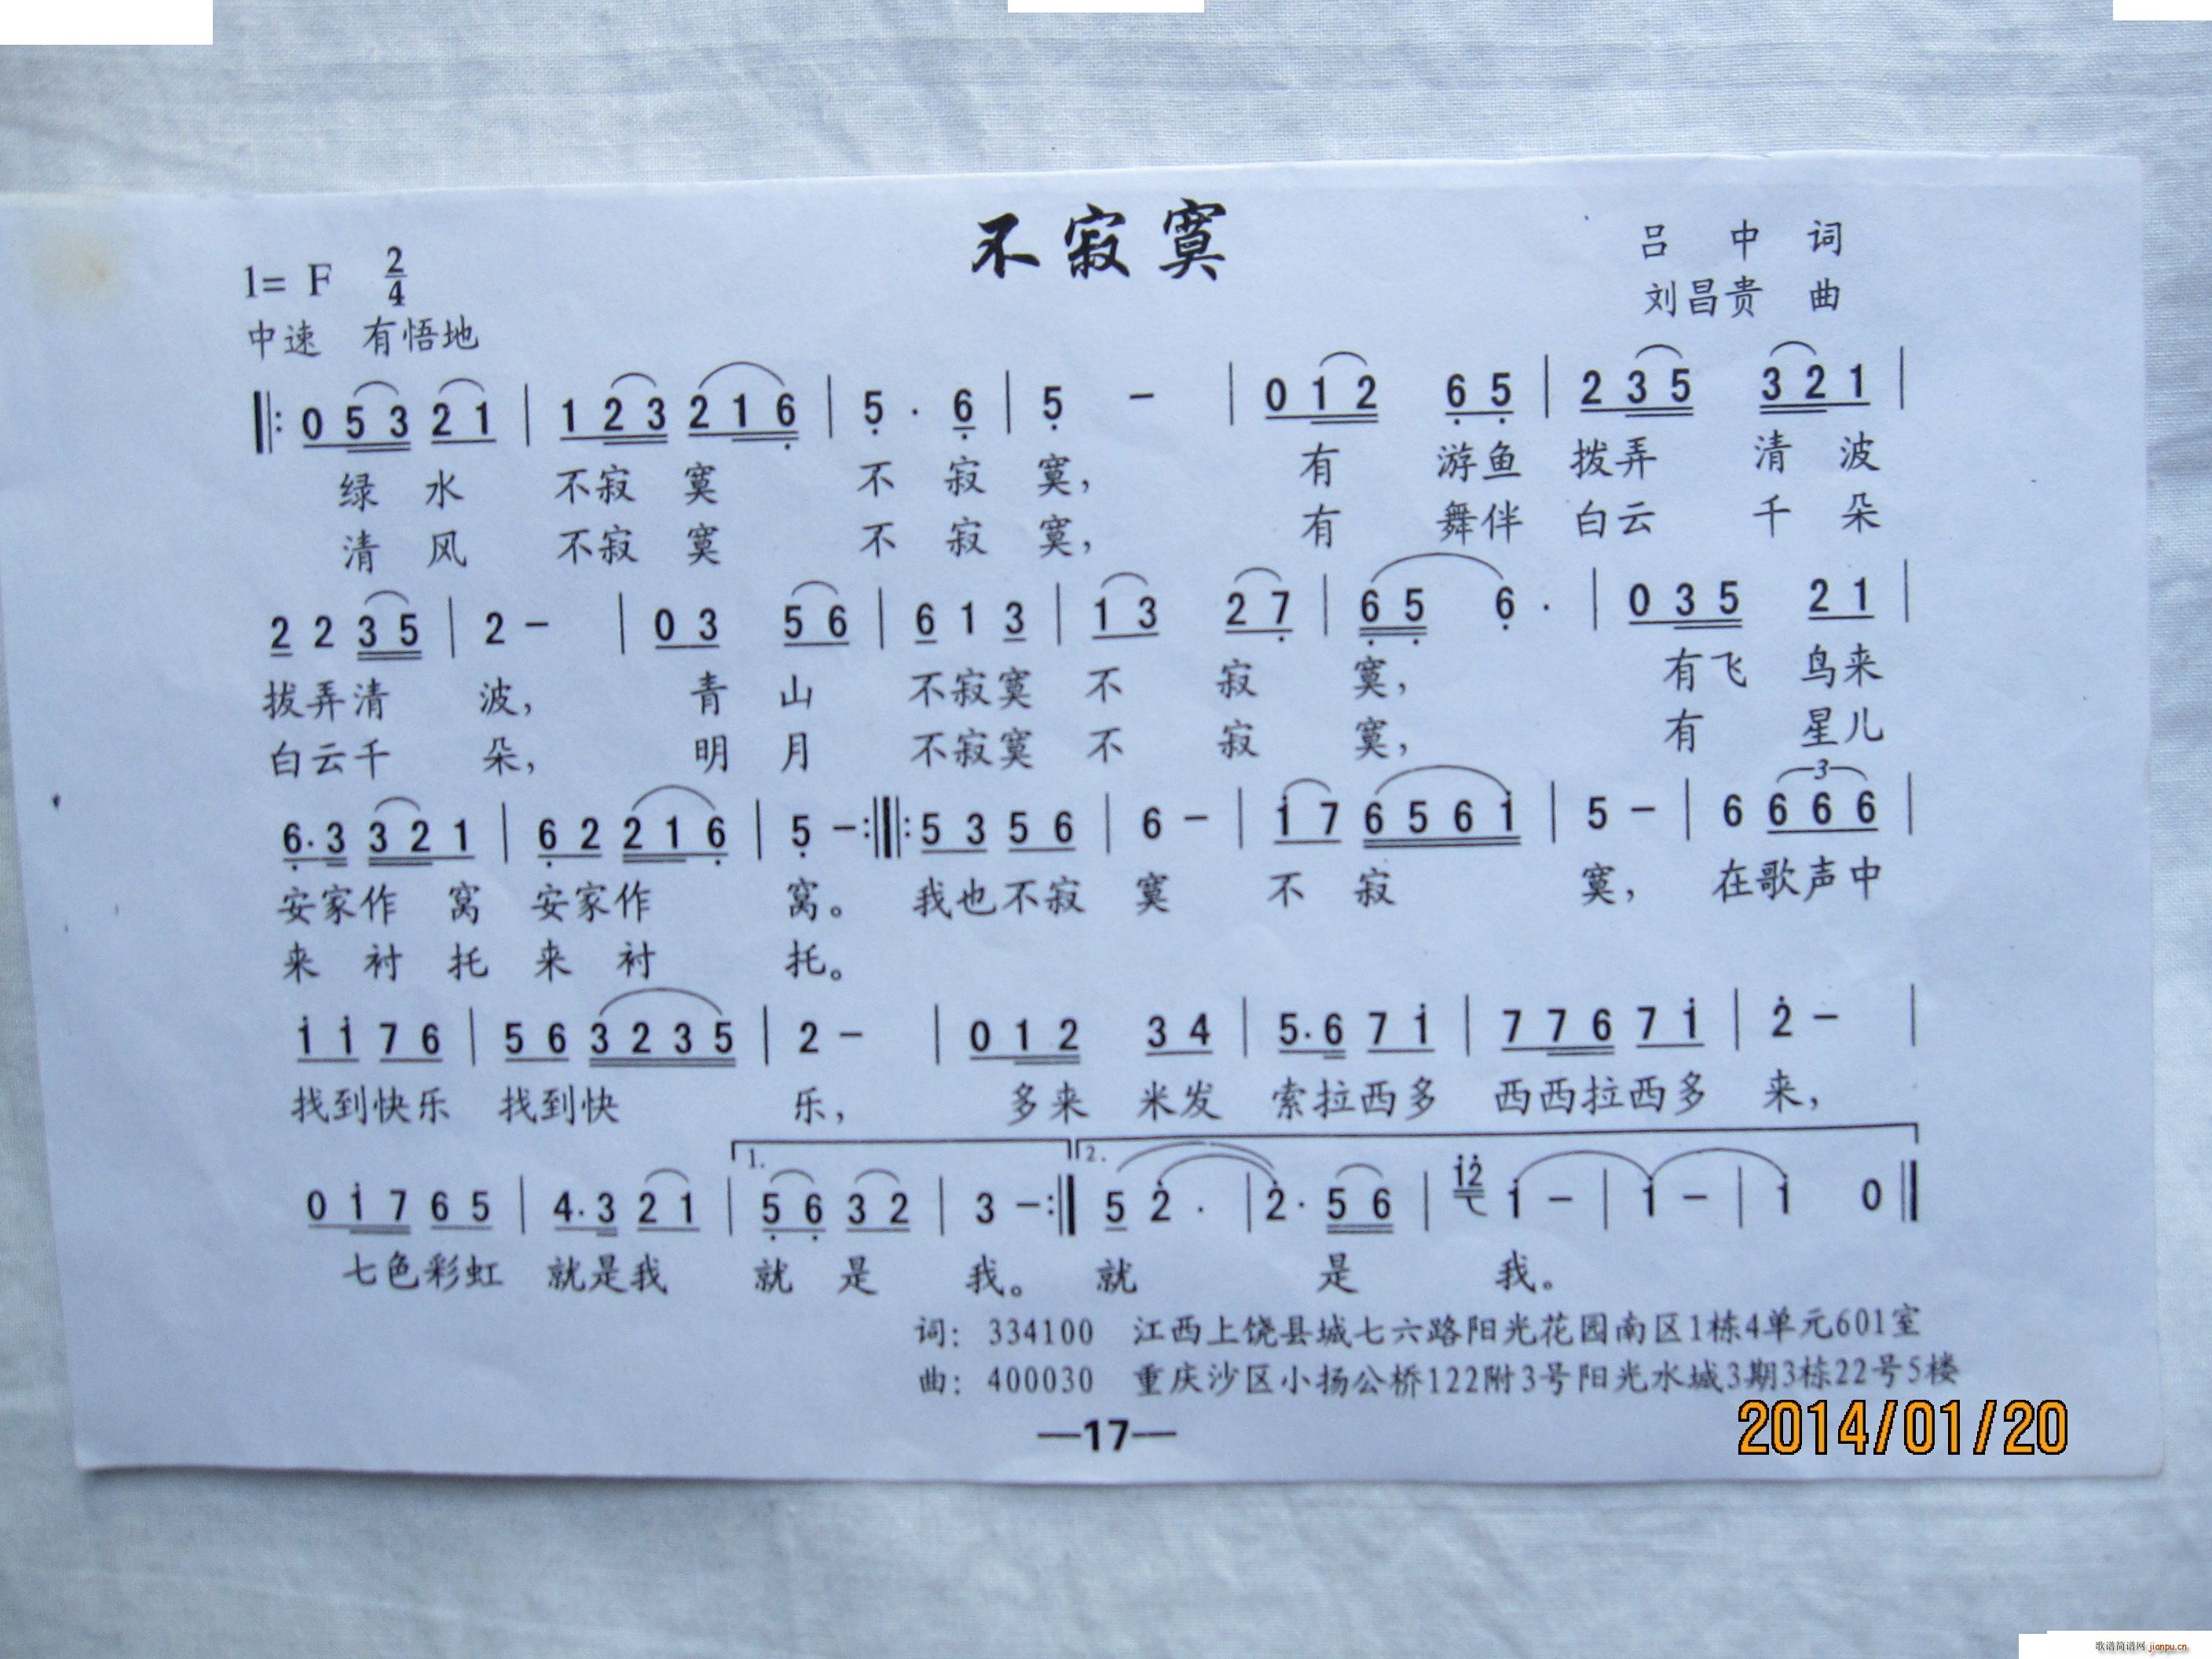 不寂寞
1= F 2/4
吕 中 词
中速 有悟地
刘昌贵 曲
0 5 3 2 1 | 1 2 3 2 1 6 | 5 · 6 | 5 － | 0 1 2 6 5 | 2 3 5 3 2 1 |
绿 水 不寂 寞 不 寂 寞， 有 游鱼 拨弄 清 波
清 风 不寂 寞 不 寂 寞， 有 舞伴 白云 千 朵
2 2 3 5 | 2 － | 0 3 5 6 | 6 1 3 | 1 3 2 7 | 6 5 6 · | 0 3 5 2 1 |
拔弄清 波， 青 山 不寂寞 不 寂 寞， 有飞 鸟来
白云千 朵， 明 月 不寂寞 不 寂 寞， 有 星儿
6 · 3 3 2 1 | 6 2 2 1 6 | 5 － :‖: 5 3 5 6 | 6 － | i 7 6 5 6 i | 5 － | 6 6 6 6 |
3
安家作 窝 安家作 窝。 我也不寂 寞 不 寂 寞， 在歌声中
来 衬 托 来 衬 托。
i i 7 6 | 5 6 3 2 3 5 | 2 － | 0 1 2 3 4 | 5 · 6 7 i | 7 7 6 7 i | 2 － |
找到快乐 找到快 乐， 多来 米发 索拉西多 西西拉西多 来，
1. 2.
0 i 7 6 5 | 4 · 3 2 1 | 5 6 3 2 | 3 － :‖ 5 2 · | 2 · 5 6 | i2 i － | i － | i 0 ‖
七色彩虹 就是我 就 是 我。 就 是 我。
词： 334100 江西上饶县城七六路阳光花园南区1栋4单元601室
曲： 400030 重庆沙区小扬公桥122附3号阳光水城3期3栋22号5楼
—17—
2014/01/20
歌谱简谱网 jianpu.cn